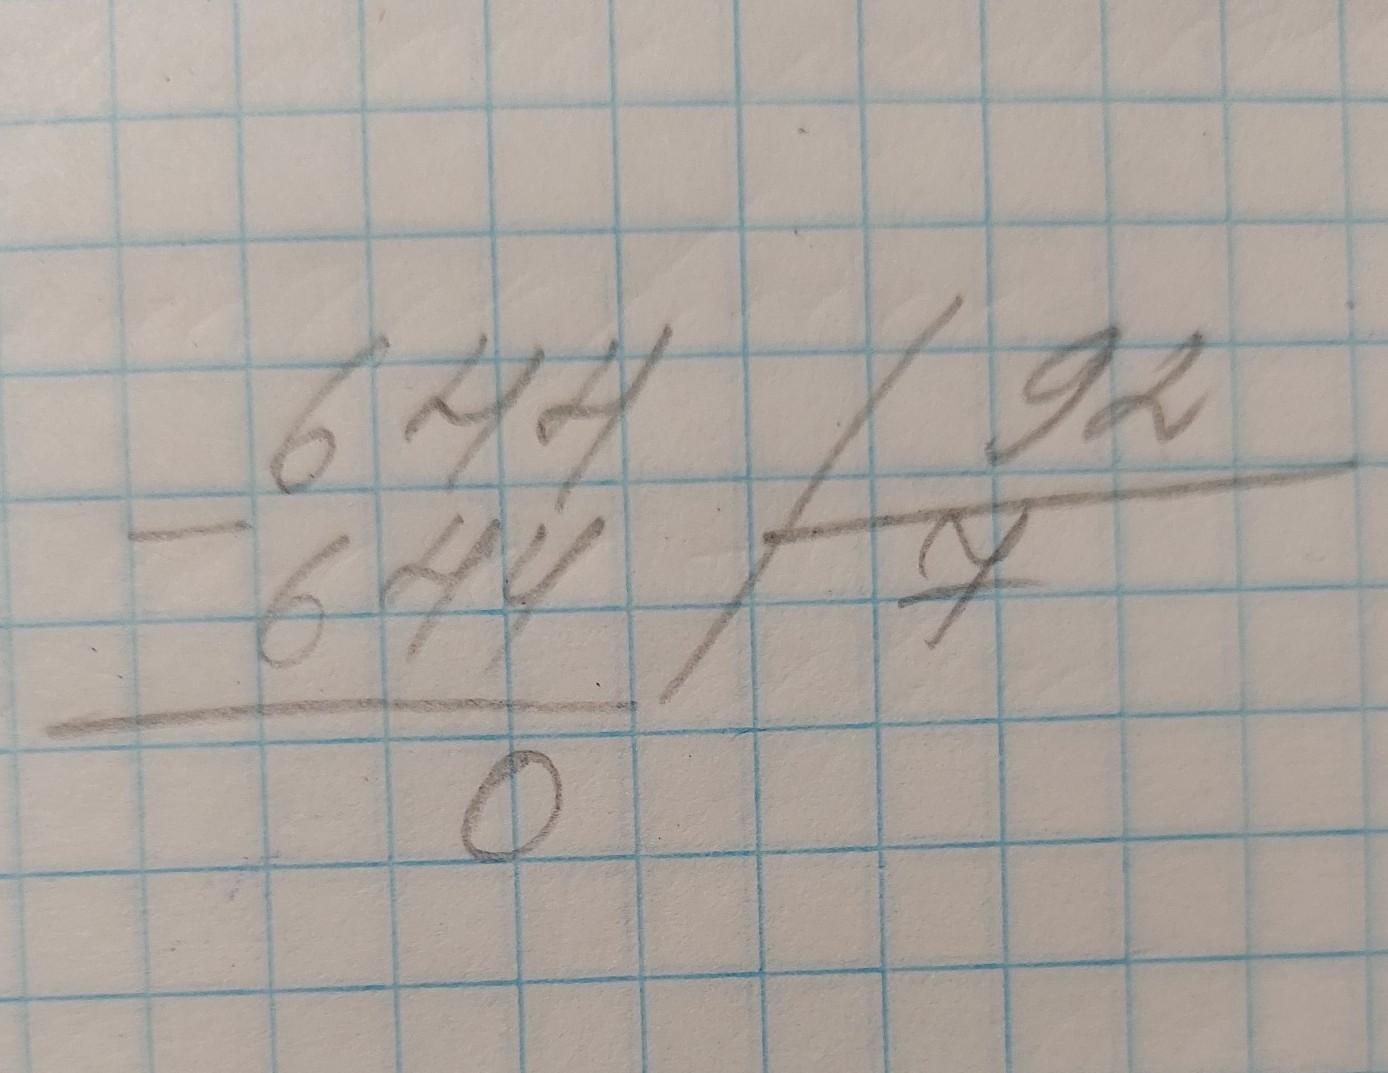 644 | 92
- 644 | 7
0